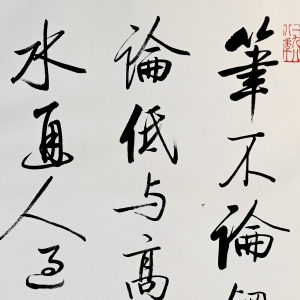 筆不論
論低与高
水通人